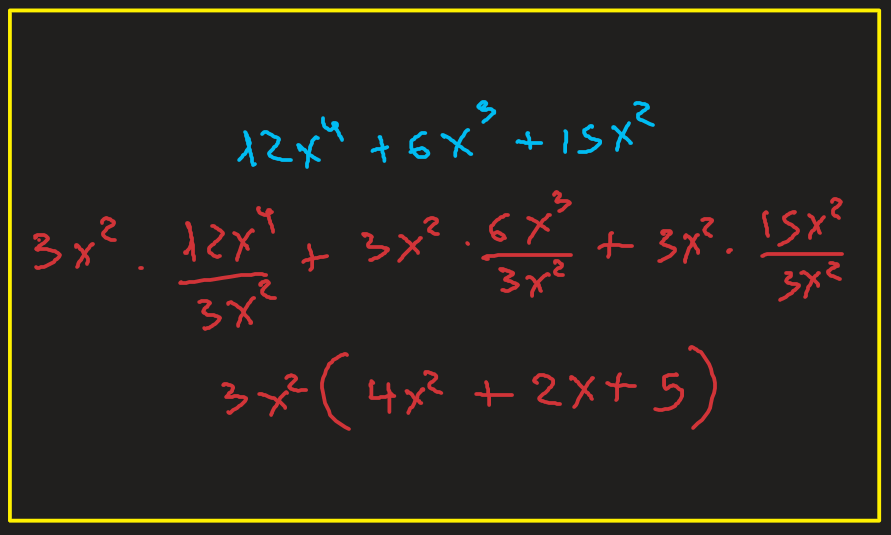 12x⁴ + 6x³ + 15x²
3x² · 12x⁴/3x² + 3x² · 6x³/3x² + 3x² · 15x²/3x²
3x² (4x² + 2x + 5)